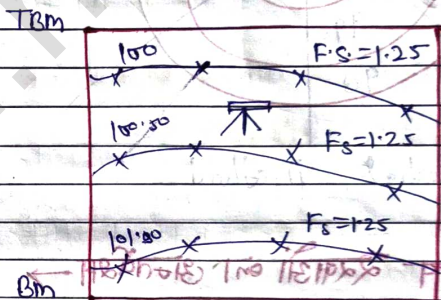 TBM
100 F.S=1.25
100.50 Fs=1.25
101.00 Fs=1.25
BM